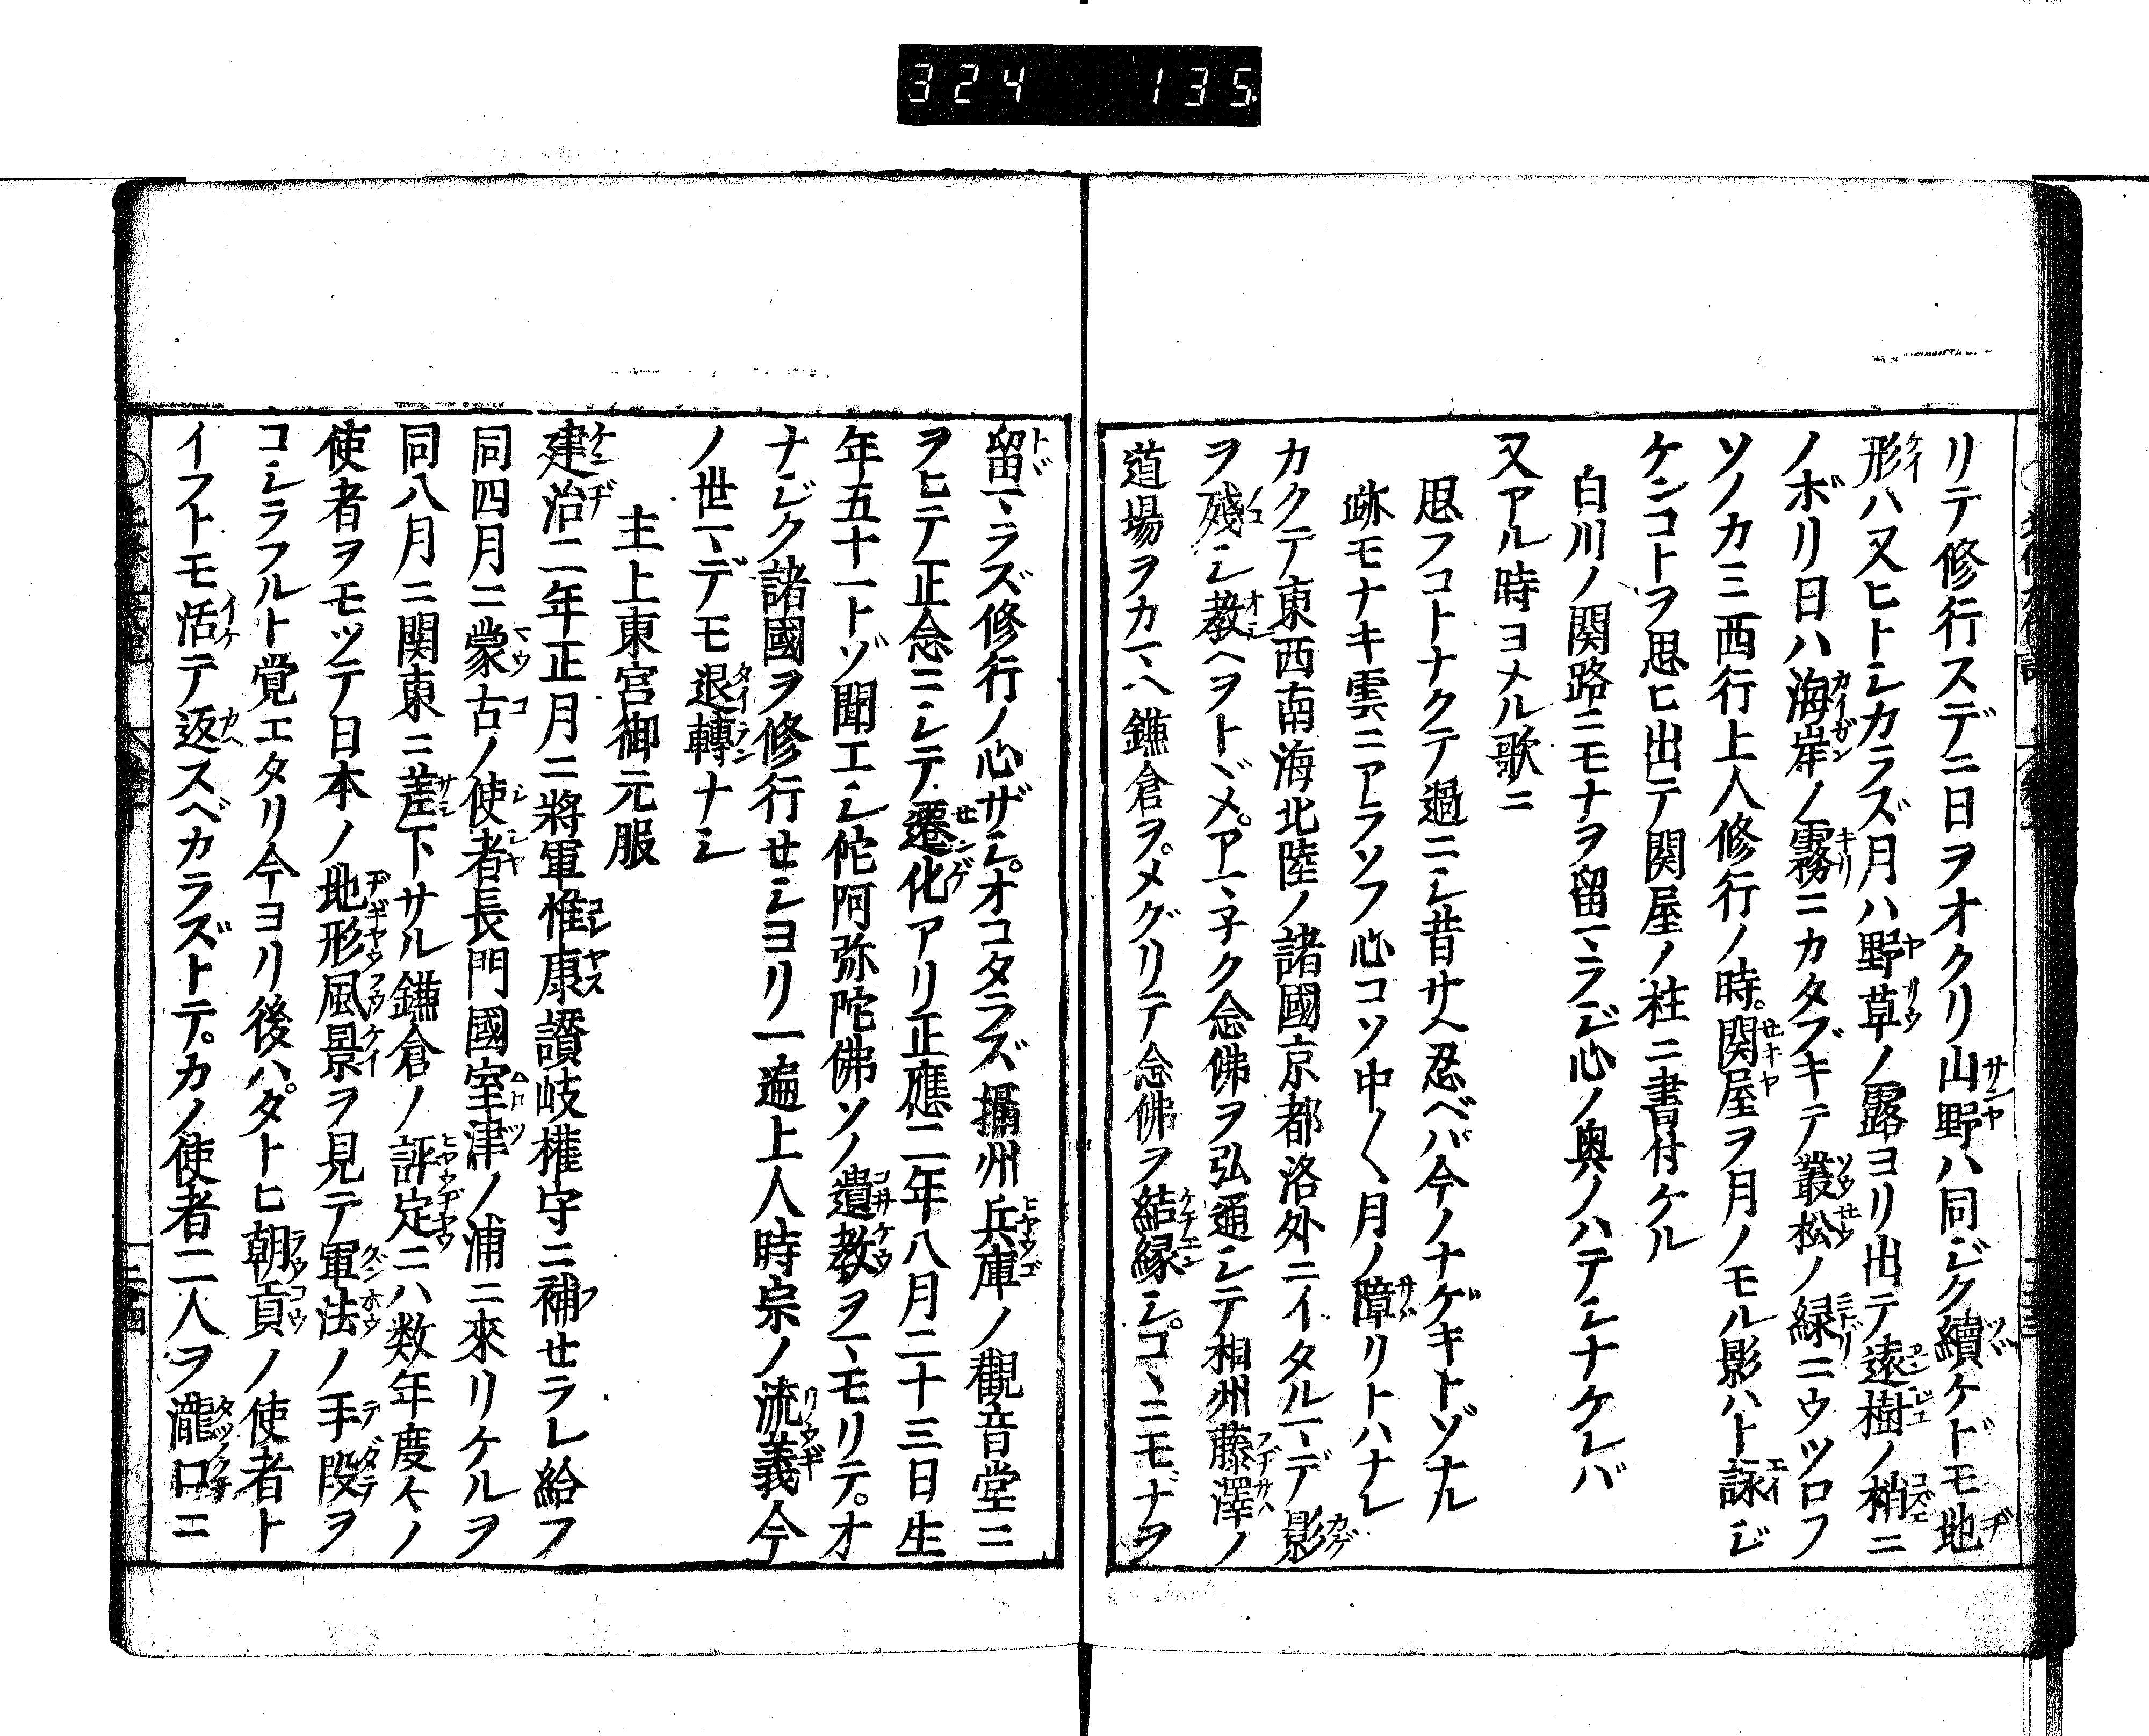 324 135
リテ修行スデニ日ヲオクリ山野ハ同ジク續ケドモ地
形ハ又ヒトシカラズ月ハ野草ノ露ヨリ出テ遠樹ノ梢ニ
ノボリ日ハ海岸ノ霧ニカタブキテ叢松ノ緑ニウツロフ
ソノカミ西行上人修行ノ時。関屋ヲ月ノモル影ハト詠ジ
ケンコトヲ思ヒ出テ関屋ノ柱ニ書付ケル
白川ノ関路ニモナヲ留マラジ心ノ奥ノハテシナケレバ
又アル時ヨメル歌ニ
思フコトナクテ過ニシ昔サヘ忍ベバ今ノナゲキトゾナル
跡モナキ雲ニアラソフ心コソ中〱月ノ障リトハナレ
カクテ東西南海北陸ノ諸國京都洛外ニイタルマデ影
ヲ殘シ教ヘヲトヾメ。アマネク念佛ヲ弘通シテ相州藤澤ノ
道場ヲカマヘ鎌倉ヲ。メグリテ念佛ヲ結縁シ。コヽニモナヲ
留マラズ修行ノ心ザシ。オコタラズ攝州兵庫ノ觀音堂ニ
ヲヒテ正念ニシテ遷化アリ正應二年八月二十三日生
年五十一トゾ聞エシ佗阿弥陀佛ソノ遺教ヲマモリテ。オ
ナジク諸國ヲ修行セシヨリ一遍上人時宗ノ流義今
ノ世マデモ退轉ナシ
主上東宮御元服
建治二年正月ニ將軍惟康讃岐權守ニ補セラレ給フ
同四月ニ蒙古ノ使者長門國室津ノ浦ニ來リケルヲ
同八月ニ関東ニ差下サル鎌倉ノ評定ニハ数年度々ノ
使者ヲモツテ日本ノ地形風景ヲ見テ軍法ノ手段ヲ
コシラフルト覚エタリ今ヨリ後ハ。タトヒ朝貢ノ使者ト
イフトモ活テ返スベカラズトテ。カノ使者二人ヲ瀧口ニ